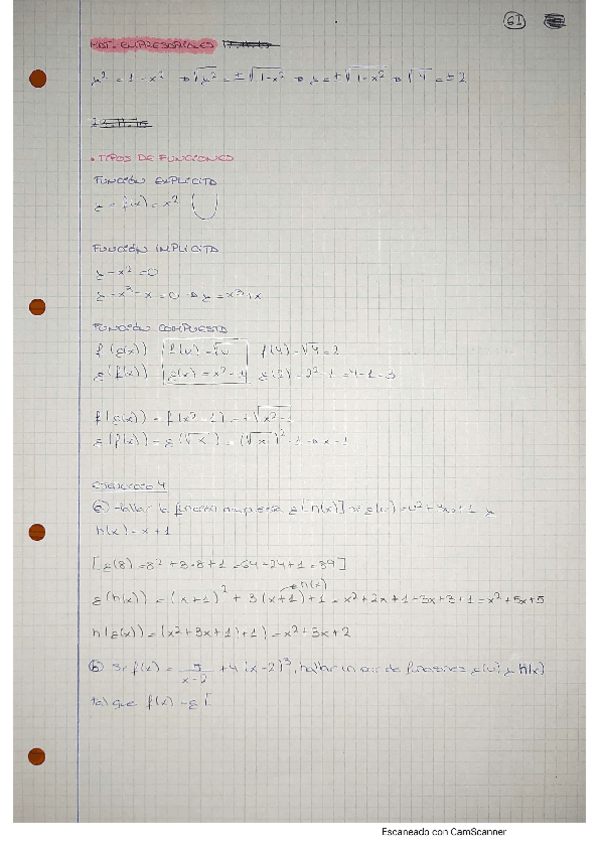 61
MAT. EMPRESARIALES
y² = 1 - x² → √y² = ±√1-x² → y = +√1-x² → √4 = ±2
• TIPOS DE FUNCIONES
FUNCIÓN EXPLÍCITA
y = f(x) = x²
FUNCIÓN IMPLÍCITA
y - x² = 0
y - x³ - x = 0 → y = x³ + x
FUNCIÓN COMPUESTA
f(g(x)) f(u) = √u f(4) = √4 = 2
g(f(x)) g(x) = x² - 1 g(2) = 2² - 1 = 4 - 1 = 3
f(g(x)) = f(x² - 1) = +√x² - 1
g(f(x)) = g(√x) = (√x)² - 1 → x - 1
EJERCICIO 4
a) Hallar la función compuesta g[h(x)] g(u) = u² + 3u + 1 y
h(x) = x + 1
[g(8) = 8² + 3·8 + 1 = 64 + 24 + 1 = 89]
h(x)
g(h(x)) = (x+1)² + 3(x+1) + 1 = x² + 2x + 1 + 3x + 3 + 1 = x² + 5x + 5
h(g(x)) = (x² + 3x + 1) + 1) = x² + 3x + 2
b) Si f(x) = 5/(x-2) + 4(x-2)³, hallar un par de funciones g(u) y h(x)
tal que f(x) = g[
Escaneado con CamScanner